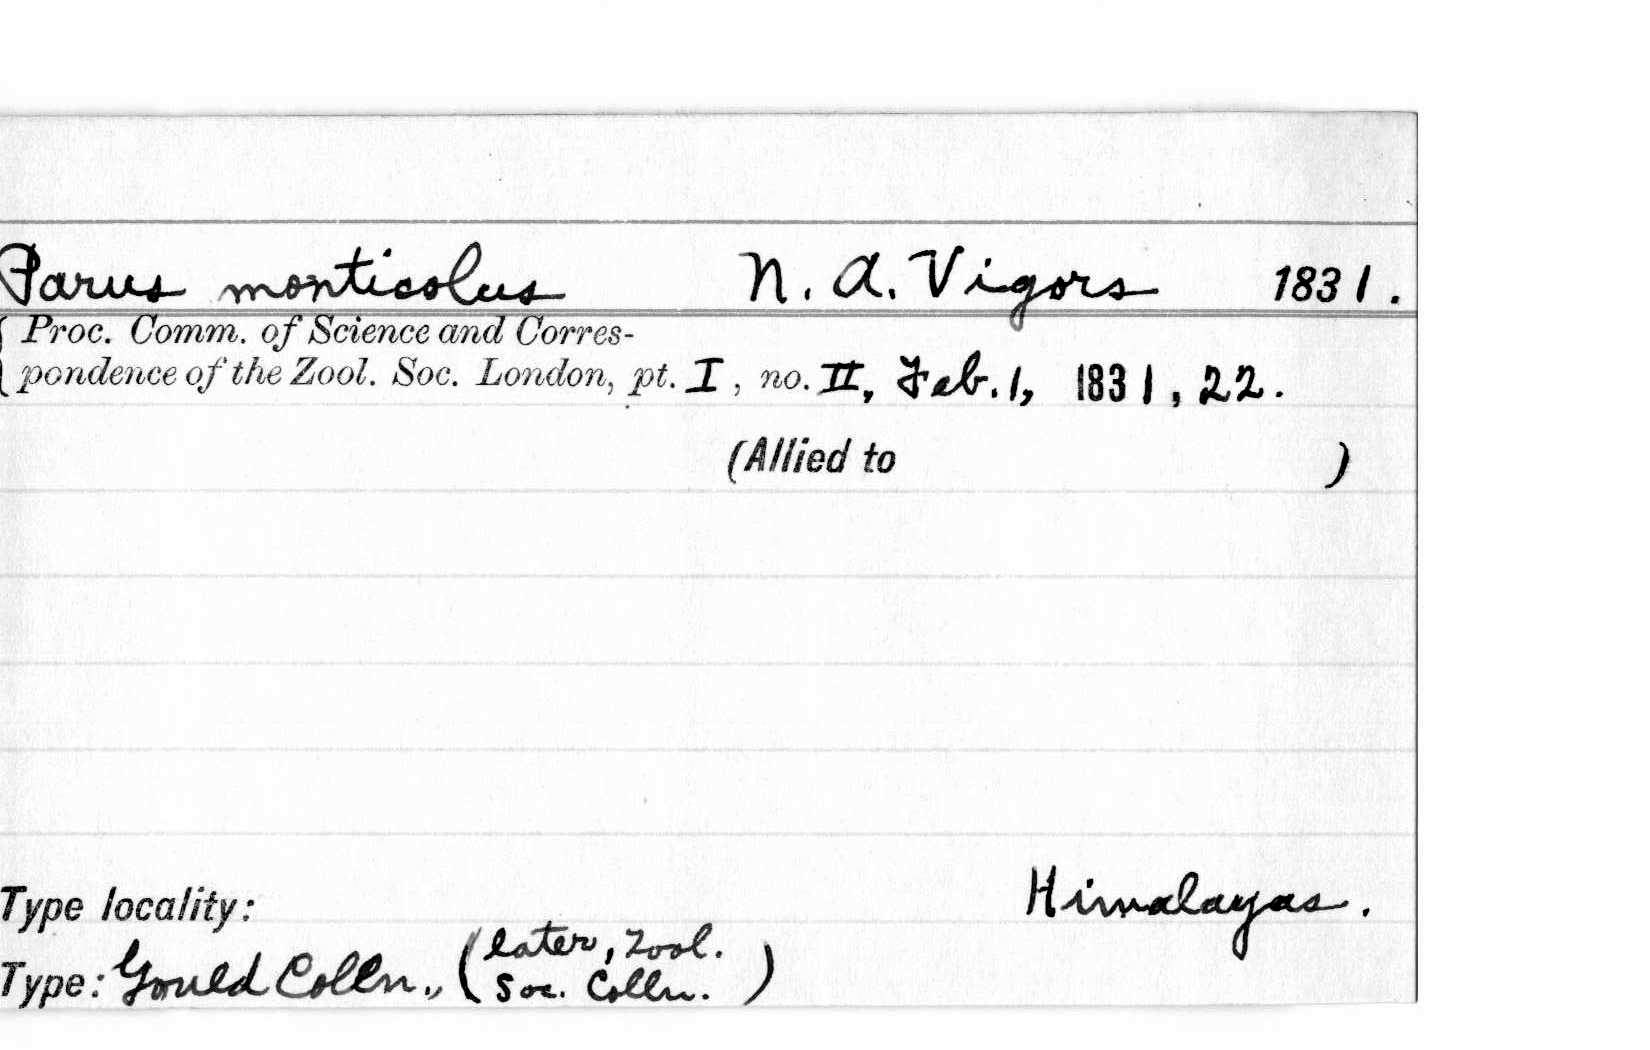 Parus monticolus N. A. Vigors 1831.
Proc. Comm. of Science and Corres-
pondence of the Zool. Soc. London, pt. I, no. II, Feb. 1, 1831, 22.
(Allied to )
Type locality: Himalayas.
Type: Gould Colln., (later, Zool.
Soc. Colln.)